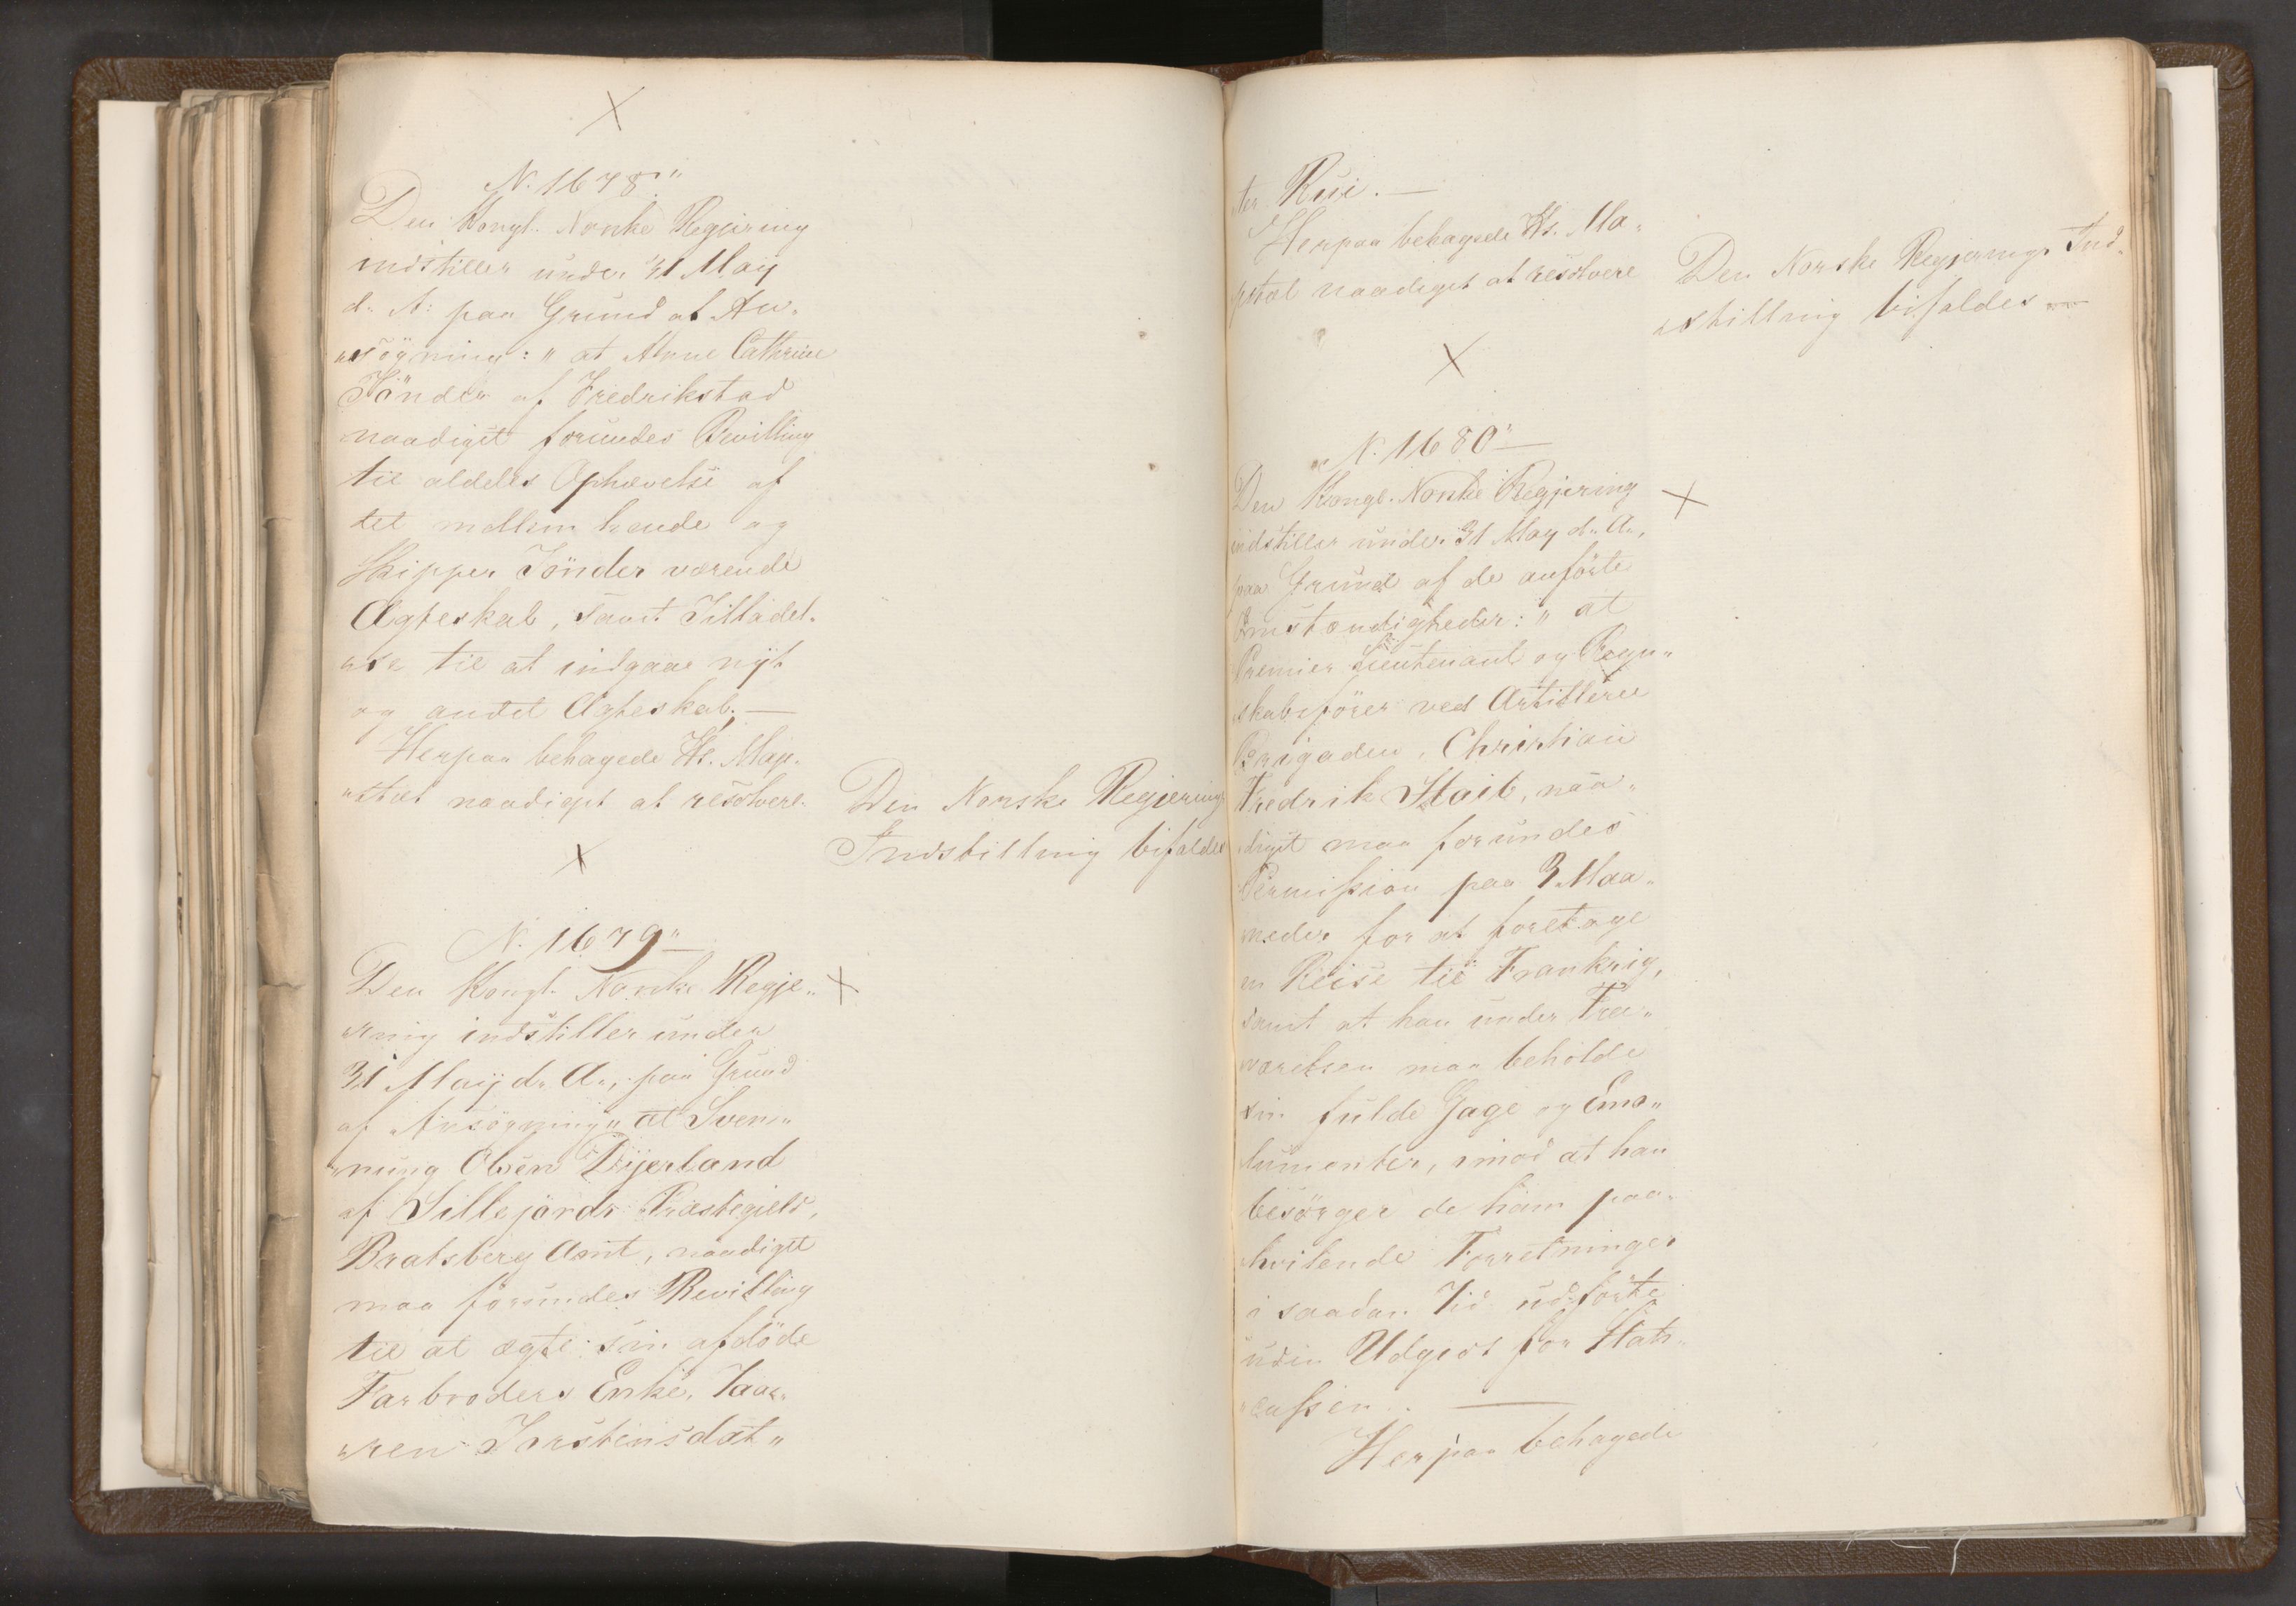 N. 1678."
Den Kongl. Norske Regjering
indstiller under 31 May
d. A: paa Grund af An-
"søgning: " at Anne Cathrine
Tönder af Fredrikstad
naadigst forundes Bevilling
til aldeles Ophævelse af
det mellem hende og
Skipper Tönder værende
Ægteskab, samt Tilladel-
"se til at indgaae nyt
og andet Ægteskab; —
Herpaa behagede Hs. Maje-
"stæt naadigst at resolvere.
Den Norske Regjerings
Indstilling bifaldes
N. 1679"
Den Kongl. Norske Regje-
"ring indstiller under
31 May d. A., paa Grund
af Ansögning " at Sven-
"nung Olsen
af Sillejords Præstegjeld,
Bratsberg Amt, naadigst
maa forundes Bevilling
til at ægte sin afdöde
Farbroders Enke, Taar-
"ren Torstensdat"
ter Rui. —
Herpaa behagede Hs. Ma-
jestæt naadigst at resolvere
Den Norske Regjerings Ind-
"stilling bifaldes
N. 1680"
Den Kongl. Norske Regjering
indstiller under 31 May d. A.,
paa Grund af de anförte
Omstændigheder: " at
Premier Lieutenant og Regn-
skabsförer ved Artillerie
Brigaden, Christian
Fredrik Staib, naa-
digst maa forundes
Permission paa 3 Maa-
neder for at foretage
en Reise til Frankrig,
samt at han under Fra-
værelsen maa beholde
sin fulde Gage og Emo-
lumenter, imod at han
besörger de ham paa-
hvilende Forretninger
i saadan Tid udförte
uden Udgivt for Stats-
cassen. —
Herpaa behagede